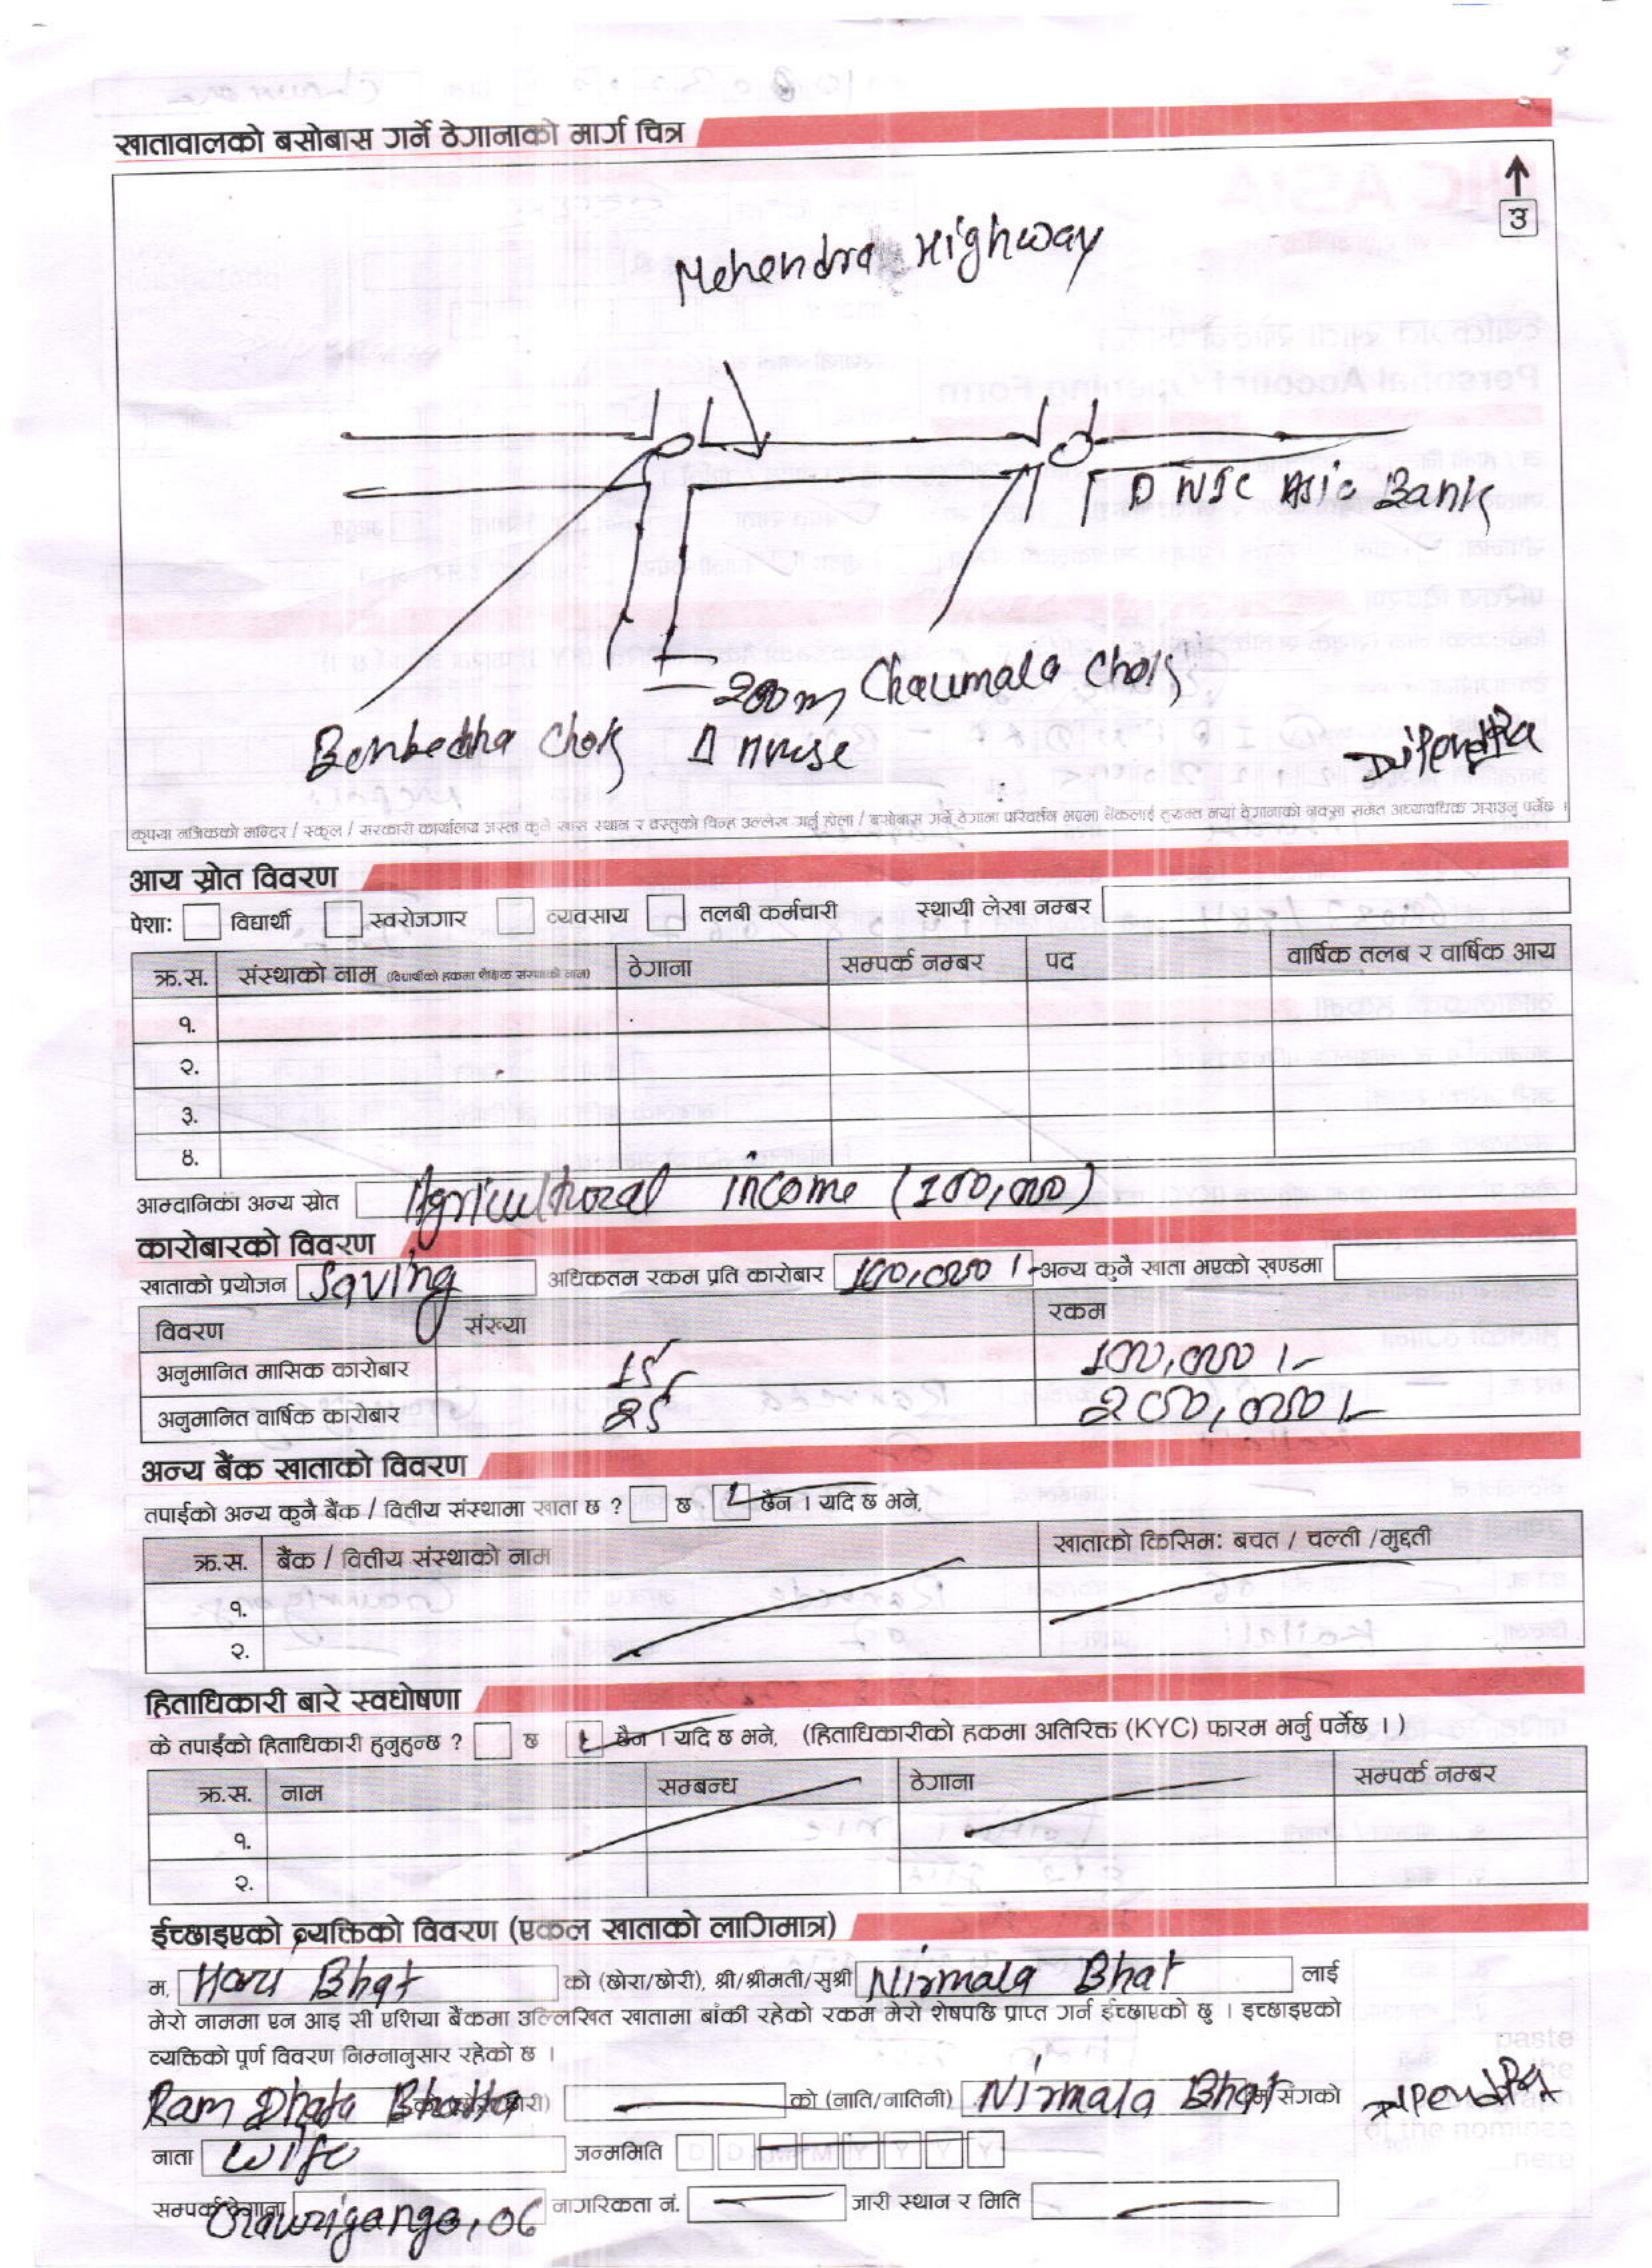 खातावालको बसोबास गर्ने ठेगानाको मार्ग चित्र
उ
Mehendra Highway
NIC Asia Bank
200m Chaumala Chok
Banbedha Chok
Dipendra
कृपया नजिकको मन्दिर / स्कूल / सरकारी कार्यालय जस्ता कुनै खास स्थान र वस्तुको चिन्ह उल्लेख गर्नु होला / बसोबास गर्ने ठेगाना परिवर्तन भएमा बैंकलाई तुरुन्त नयाँ ठेगानाको नक्सा समेत अध्यावधिक गराउनु पर्नेछ ।
आय स्रोत विवरण
पेशा: विद्यार्थी स्वरोजगार व्यवसाय तलबी कर्मचारी स्थायी लेखा नम्बर
क्र.स. संस्थाको नाम (विद्यार्थीको हकमा शैक्षिक संस्थाको नाम) ठेगाना सम्पर्क नम्बर पद वार्षिक तलब र वार्षिक आय
१.
२.
३.
४.
आम्दानिका अन्य स्रोत Agricultural income (100,000)
कारोबारको विवरण
खाताको प्रयोजन Saving अधिकतम रकम प्रति कारोबार 100,000 /- अन्य कुनै खाता भएको खण्डमा
विवरण संख्या रकम
अनुमानित मासिक कारोबार 15 100,000 /-
अनुमानित वार्षिक कारोबार 25 200,000 /-
अन्य बैंक खाताको विवरण
तपाईको अन्य कुनै बैंक / वित्तीय संस्थामा खाता छ ? छ छैन । यदि छ भने,
क्र.स. बैंक / वित्तीय संस्थाको नाम खाताको किसिम: बचत / चल्ती /मुद्दती
१.
२.
हिताधिकारी बारे स्वघोषणा
के तपाईंको हिताधिकारी हुनुहुन्छ ? छ छैन । यदि छ भने, (हिताधिकारीको हकमा अतिरिक्त (KYC) फारम भर्नु पर्नेछ ।)
क्र.स. नाम सम्बन्ध ठेगाना सम्पर्क नम्बर
१.
२.
ईच्छाइएको व्यक्तिको विवरण (एकल खाताको लागिमात्र)
म, Hari Bhat को (छोरा/छोरी), श्री/श्रीमती/सुश्री Nirmala Bhat लाई
मेरो नाममा एन आइ सी एशिया बैंकमा उल्लिखित खातामा बांकी रहेको रकम मेरो शेषपछि प्राप्त गर्न ईच्छाएको छु । इच्छाइएको
व्यक्तिको पूर्ण विवरण निम्नानुसार रहेको छ ।
Ram को (नाति/नातिनी) Nirmala Bhat म संगको Dipendra
नाता wife जन्ममिति D D M M Y Y Y Y
सम्पर्क ठेगाना Gauriganga, 06 नागरिकता नं. जारी स्थान र मिति